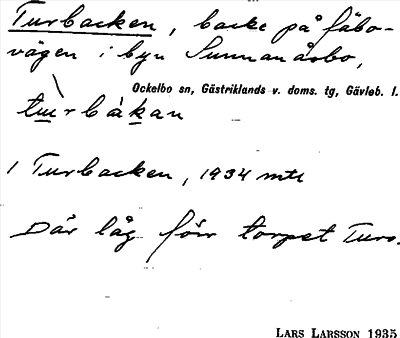 Turbacken, backe på fäbo-
vägen i byn Sunnanåsbo,
Ockelbo sn, Gästriklands v. doms. tg, Gävleb. l.
turbàkan
1 Turbacken, 1934 mtl
Där låg förr torpet Turs.
LARS LARSSON 1935